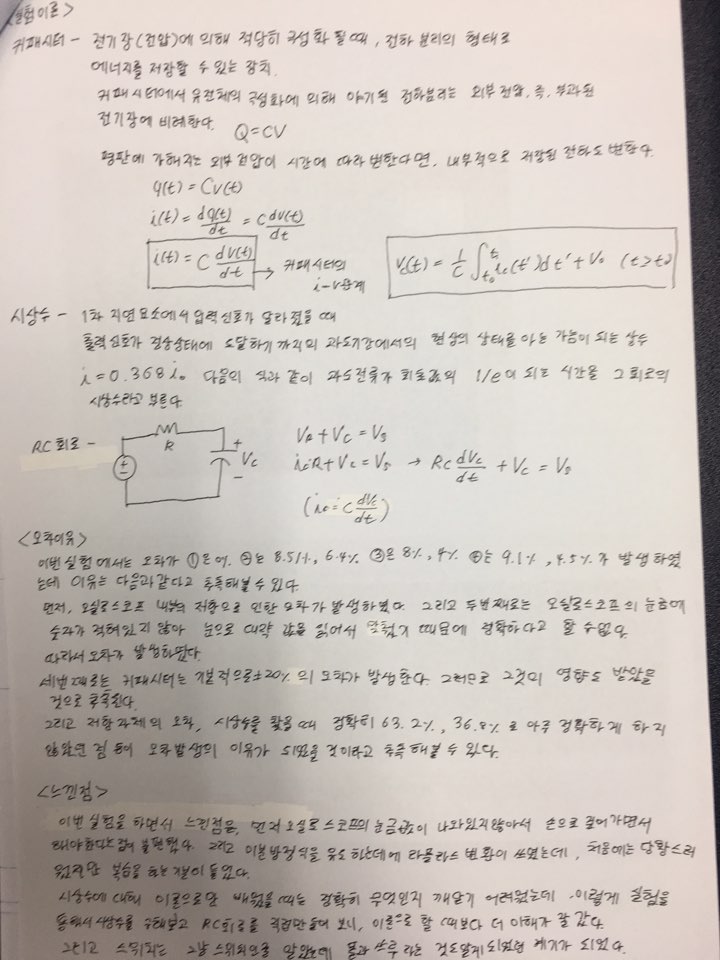 <실험이론>
커패시터 - 전기장(전압)에 의해 적당히 극성화 될 때, 전하 분리의 형태로
에너지를 저장할 수 있는 장치.
커패시터에서 유전체의 극성화에 의해 야기된 전하분리는 외부 전압, 즉, 부과된
전기장에 비례한다.
Q=CV
평판에 가해지는 외부 전압이 시간에 따라 변한다면, 내부적으로 저장된 전하도 변한다.
q(t) = Cv(t)
i(t) = dq(t)/dt = C dv(t)/dt
i(t) = C dv(t)/dt → 커패시터의 i-v관계
Vc(t) = 1/C ∫t0 t ic(t')dt' + V0 (t≥t0)
시상수 - 1차 지연요소에서 입력신호가 달라졌을 때
출력신호가 정상상태에 도달하기까지의 과도기간에서의 현상의 상태를 아는 가늠이 되는 상수
i = 0.368i0 다음의 식과 같이 과도전류가 최초값의 1/e이 되는 시간을 그 회로의
시상수라고 부른다.
RC회로 -
R
+ Vc -
VR + VC = VS
icR + Vc = Vs → RC dVc/dt + Vc = Vs
(ic = C dVc/dt)
<오차이유>
이번 실험에서는 오차가 ①은 0%. ②는 8.51%, 6.4% ③은 8%, 4% ④는 9.1%, 4.5%가 발생하였
는데 이유는 다음과 같다고 추측해볼 수 있다.
먼저, 오실로스코프 내부의 저항으로 인한 오차가 발생하였다. 그리고 두번째로는 오실로스코프의 눈금에
숫자가 적혀있지 않아 눈으로 대략 값을 읽어서 때문에 정확하다고 할 수 없다.
따라서 오차가 발생하였다.
세번째로는 커패시터는 기본적으로 ±20%의 오차가 발생한다. 그러므로 그것의 영향도 받았을
것으로 추측된다.
그리고 저항 자체의 오차, 시상수를 찾을 때 정확히 63.2%, 36.8%로 아주 정확하게 하지
않았던 점 등이 오차발생의 이유가 되었을 것이라고 추측해볼 수 있다.
<느낀점>
이번 실험을 하면서 느낀점은, 먼저 오실로스코프의 눈금값이 나와있지않아서 손으로 짚어가면서
해야한다는 점이 불편했다. 그리고 미분방정식을 유도하는데에 라플라스 변환이 쓰였는데, 처음에는 당황스러
웠지만 복습을 하는 기분이 들었다.
시상수에 대해 이론으로만 배웠을 때는 정확히 무엇인지 깨닫기 어려웠는데 이렇게 실험을
통해서 시상수를 구해보고 RC회로를 직접만들어 보니, 이론으로 할 때보다 더 이해가 잘 갔다.
그리고 스위치는 그냥 알았는데 라는 것도 알게되었던 계기가 되었다.